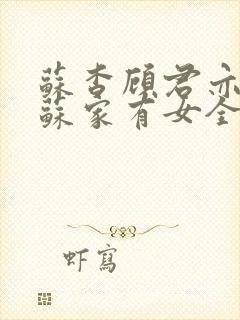 蘇杏顧君亦
蘇家有女全
虾寫